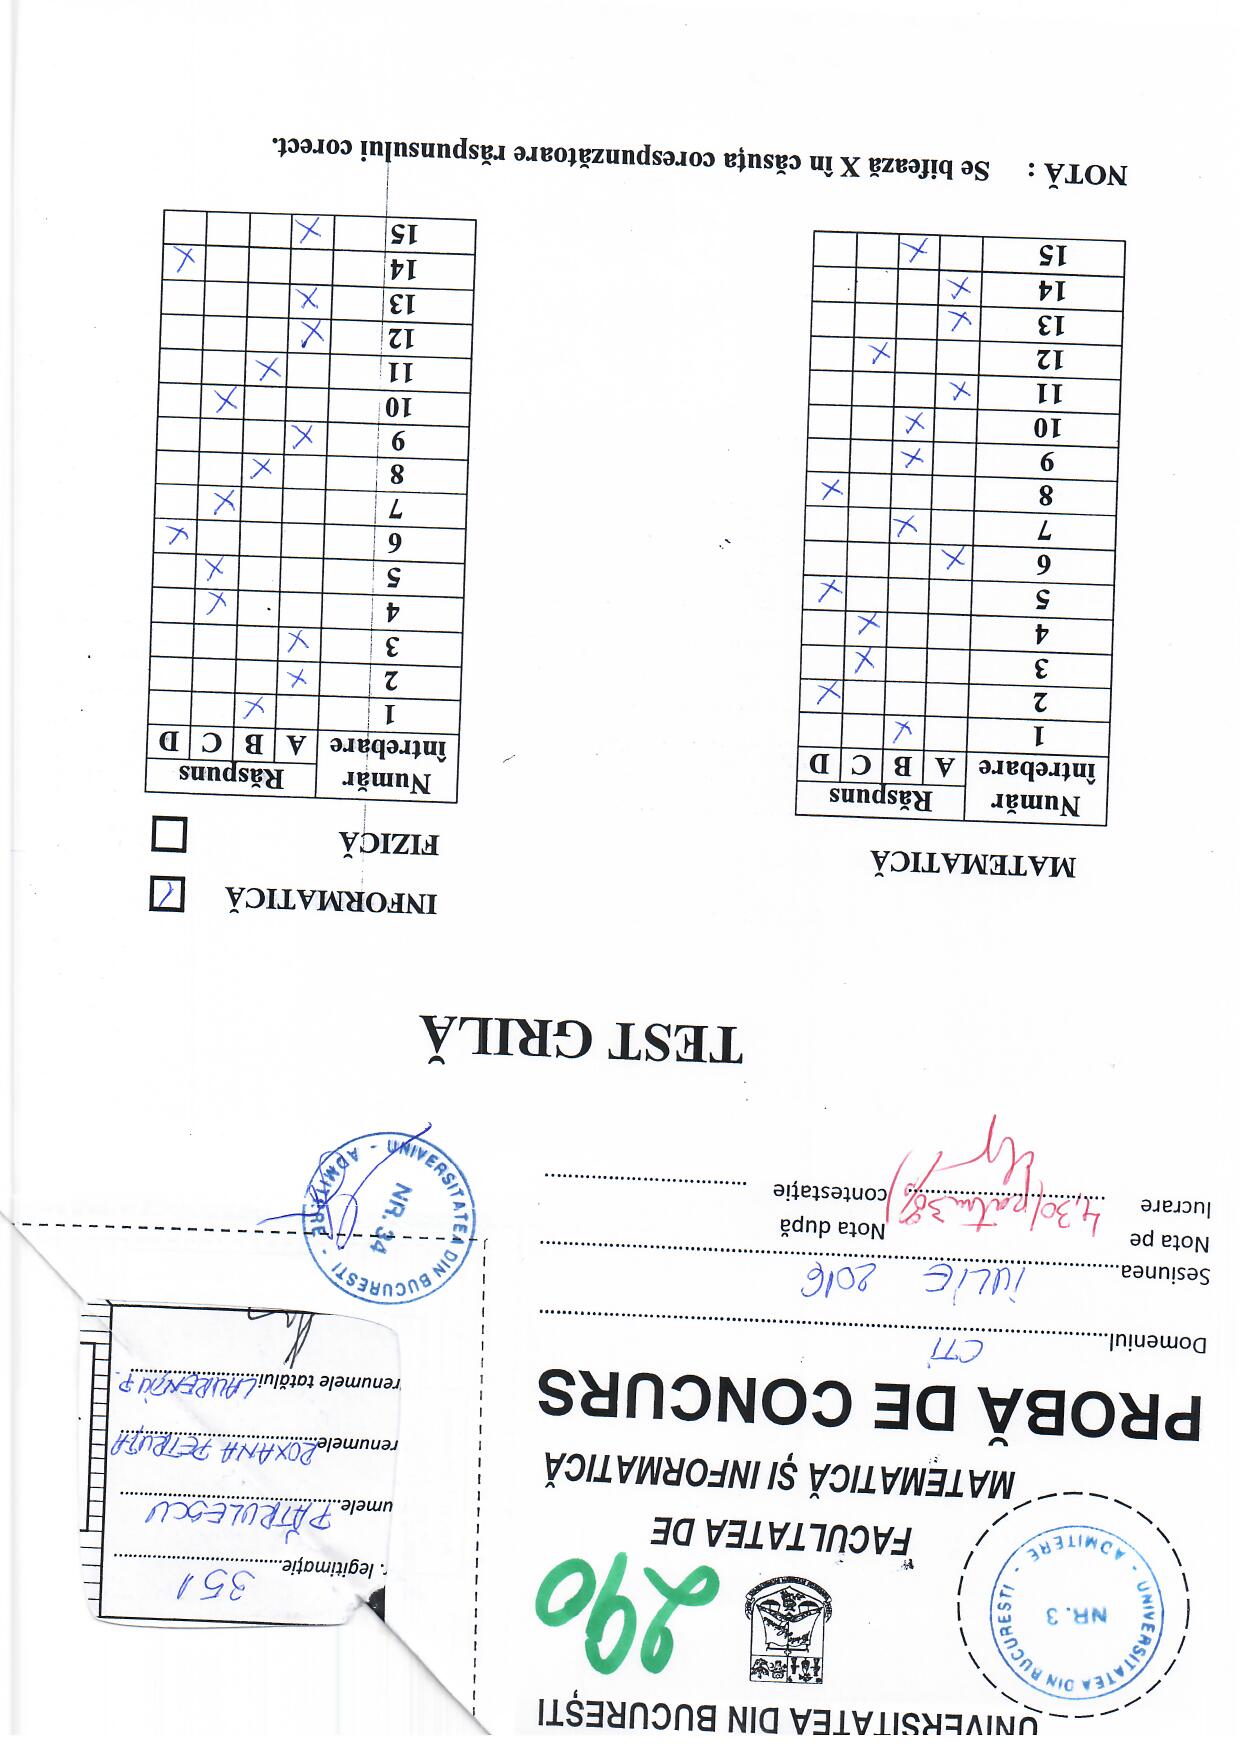 UNIVERSITATEA DIN BUCUREȘTI
UNIVERSITATEA DIN BUCURESTI - ADMITERE -
NR. 3
290
FACULTATEA DE
MATEMATICĂ ȘI INFORMATICĂ
PROBĂ DE CONCURS
Domeniul CTI
Sesiunea IULIE 2016
Nota pe lucrare 4,30 (patru 30%)
Nota după contestație
r. legitimație 351
umele PĂTRULESCU
renumele ROXANA PETRUȚA
renumele tatălui LAURENȚIU P.
UNIVERSITATEA DIN BUCURESTI - ADMITERE -
NR. 34
TEST GRILĂ
MATEMATICĂ
Număr întrebare Răspuns
A B C D
1 X
2 X
3 X
4 X
5 X
6 X
7 X
8 X
9 X
10 X
11 X
12 X
13 X
14 X
15 X
INFORMATICĂ
FIZICĂ
Număr întrebare Răspuns
A B C D
1 X
2 X
3 X
4 X
5 X
6 X
7 X
8 X
9 X
10 X
11 X
12 X
13 X
14 X
15 X
NOTĂ : Se bifează X în căsuța corespunzătoare răspunsului corect.